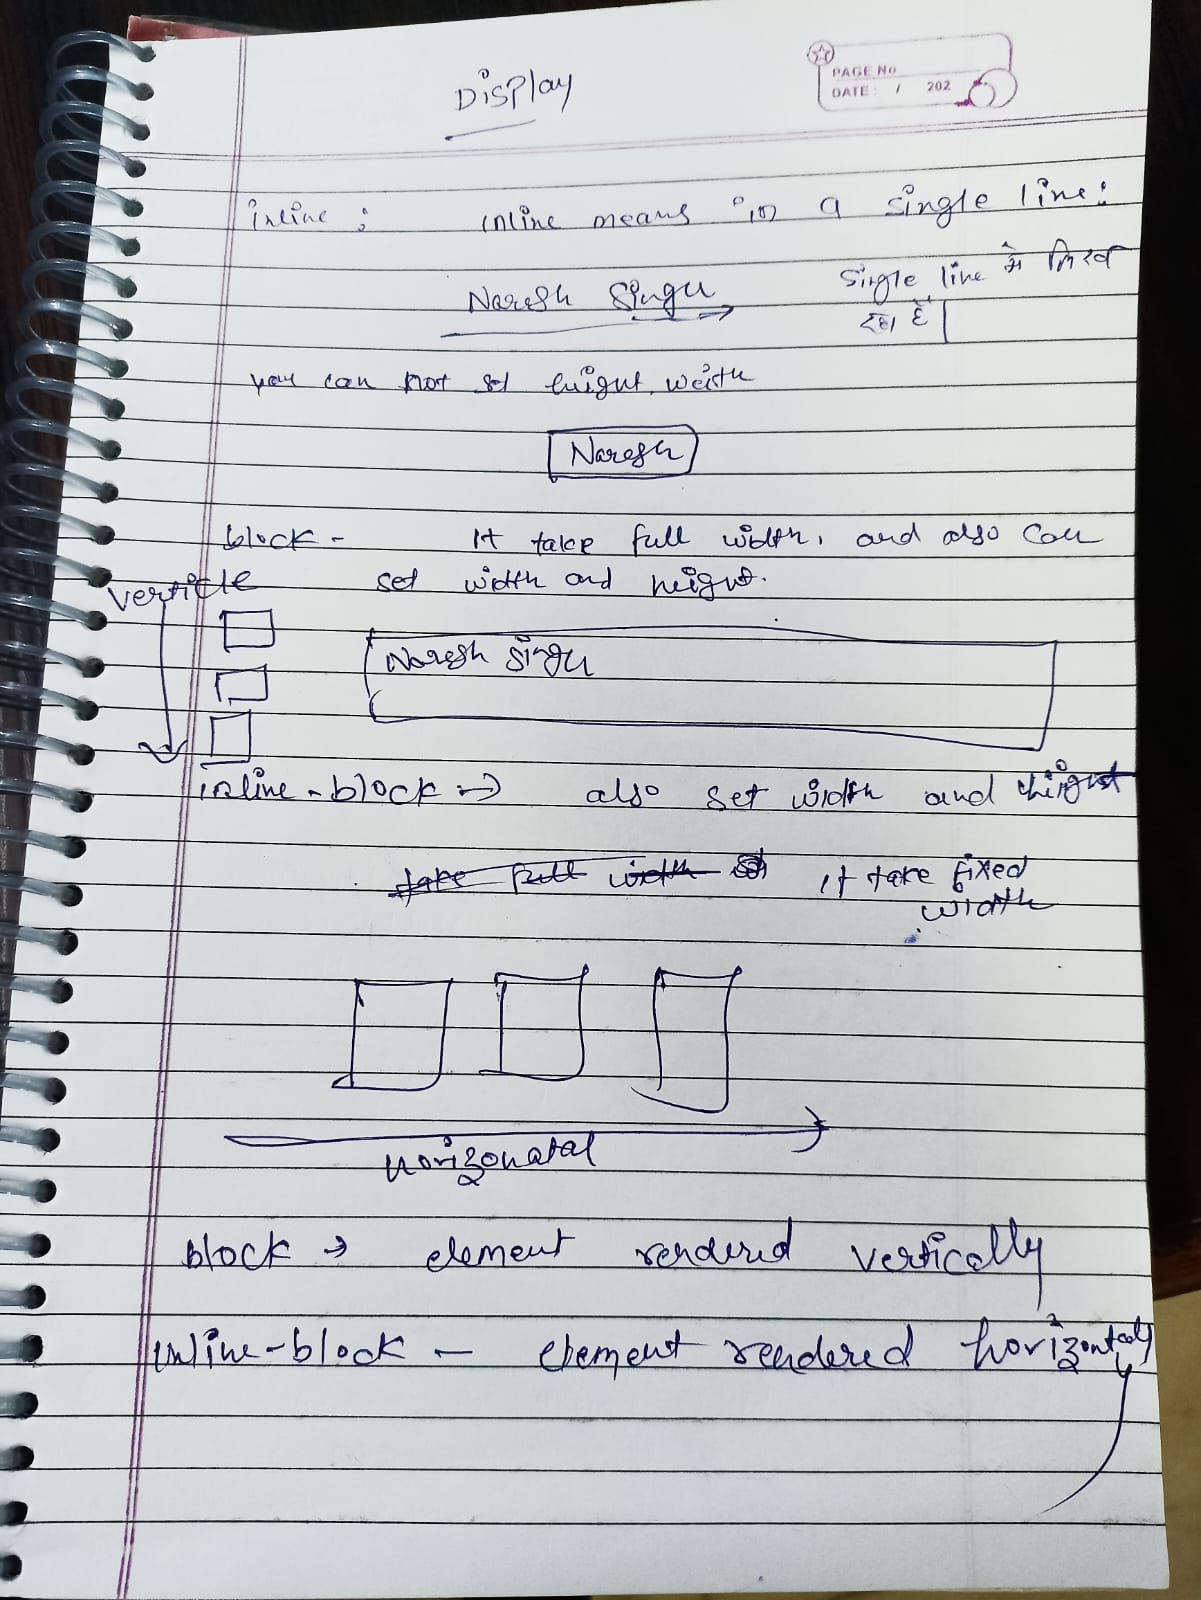 Display
PAGE No
DATE: / 202
inline : inline means in a single line:
Naresh Singh single line में लिख
रहा है|
you can not set height, width
Naresh
block - It take full width, and also can
set width and height.
verticle
Naresh Singh
inline-block → also set width and height
take full width it take fixed
width
horizonatal
block → element rendered vertically
inline-block - element rendered horizontally